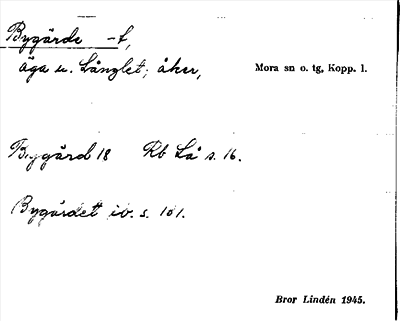 Bygärde -t,
äga u. Långlet; åker,
Mora sn o. tg, Kopp. l.
Bygärd 18 Rb Lå s. 16.
Bygärdet ib. s. 101.
Bror Lindén 1945.